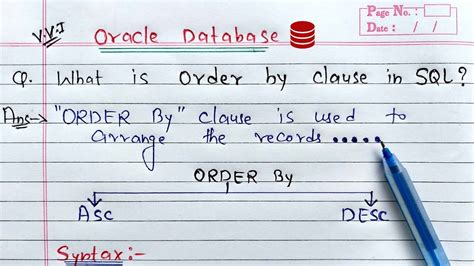 V.V.I
Oracle Database
Page No. :
Date : / /
Q. What is Order by clause in SQL?
Ans→ "ORDER By" Clause is used to
arrange the records .....
ORDER By
ASC DESC
Syntax:-